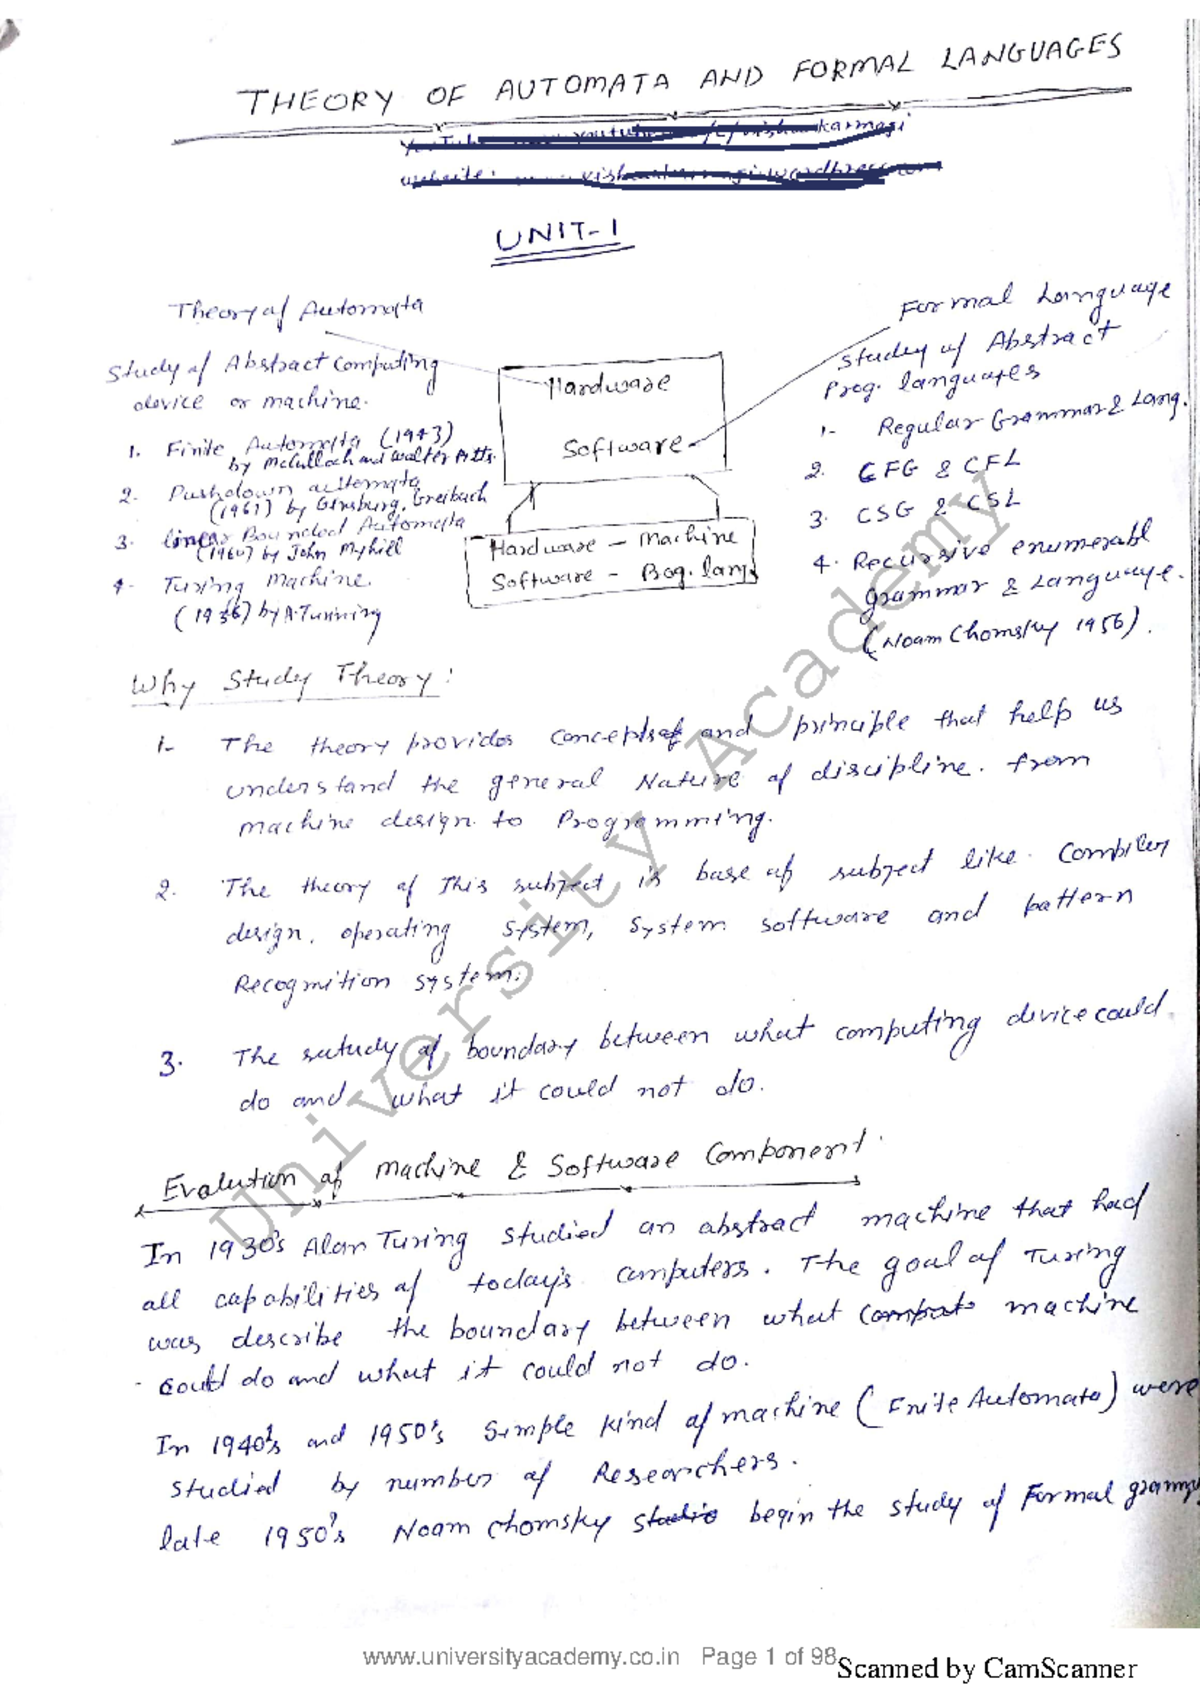 THEORY OF AUTOMATA AND FORMAL LANGUAGES
UNIT-1
Theory of Automata
Study of Abstract Computing
device or machine.
1. Finite Automata (1943)
by McCulloch and Walter Pitts.
2. Pushdown automata
(1961) by Ginsburg, Greibach
3. linear Bounded Automata
(1960) by John Myhill
4- Turing Machine.
(1936) by A. Turning
Hardware
Software
Hardware - Machine
Software - Prog. lang
Formal Language
Study of Abstract
Prog. languages
1- Regular Grammar & Lang.
2. CFG & CFL
3. CSG & CSL
4. Recursive enumerabl
grammar & Language.
(Noam Chomsky 1956).
Why Study Theory:
1- The theory provides concepts and principle that help us
understand the general Nature of discipline. from
machine design to Programming.
2. The theory of This subject is base of subject like. Compiler
design, operating System, System software and pattern
Recognition system.
3. The sutudy of boundary between what computing device could
do and what it could not do.
Evalution of Machine & Software Component.
In 1930's Alan Turing studied an abstract machine that had
all capabilities of today's computers. The goal of Turing
was describe the boundary between what machine
could do and what it could not do.
In 1940's and 1950's Simple kind of machine (Fnite Automata) were
studied by number of Researchers.
late 1950's Noam Chomsky begin the study of Formal
University Academy
www.universityacademy.co.in Page 1 of 98
Scanned by CamScanner